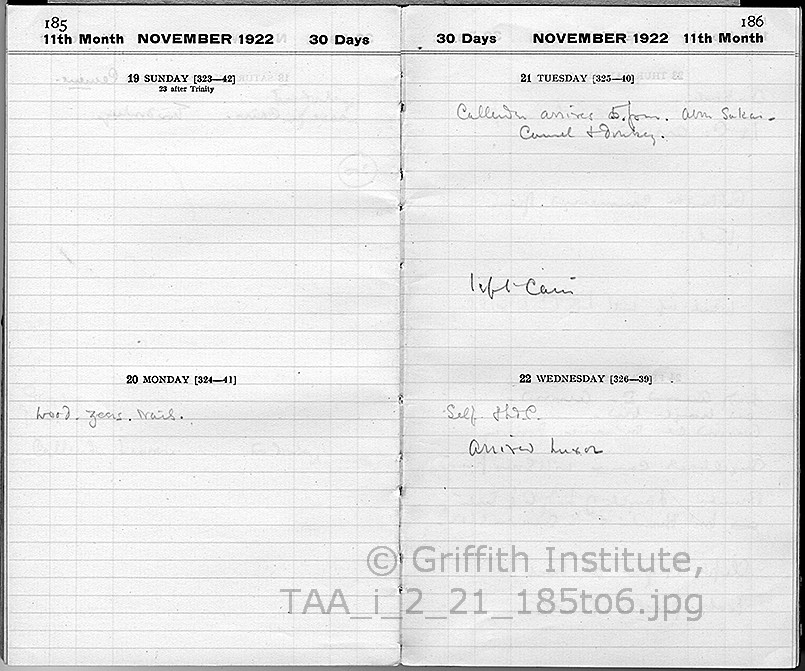 185
11th Month NOVEMBER 1922 30 Days
19 SUNDAY [323—42]
23 after Trinity
20 MONDAY [324—41]
Wood. Zeers. Nails.
186
30 Days NOVEMBER 1922 11th Month
21 TUESDAY [325—40]
Callender arrives 5. pm. Abu Sukar -
Camel & donkey.
left Cairo
22 WEDNESDAY [326—39]
Self & Ld. C.
Arrived Luxor
© Griffith Institute,
TAA_i_2_21_185to6.jpg